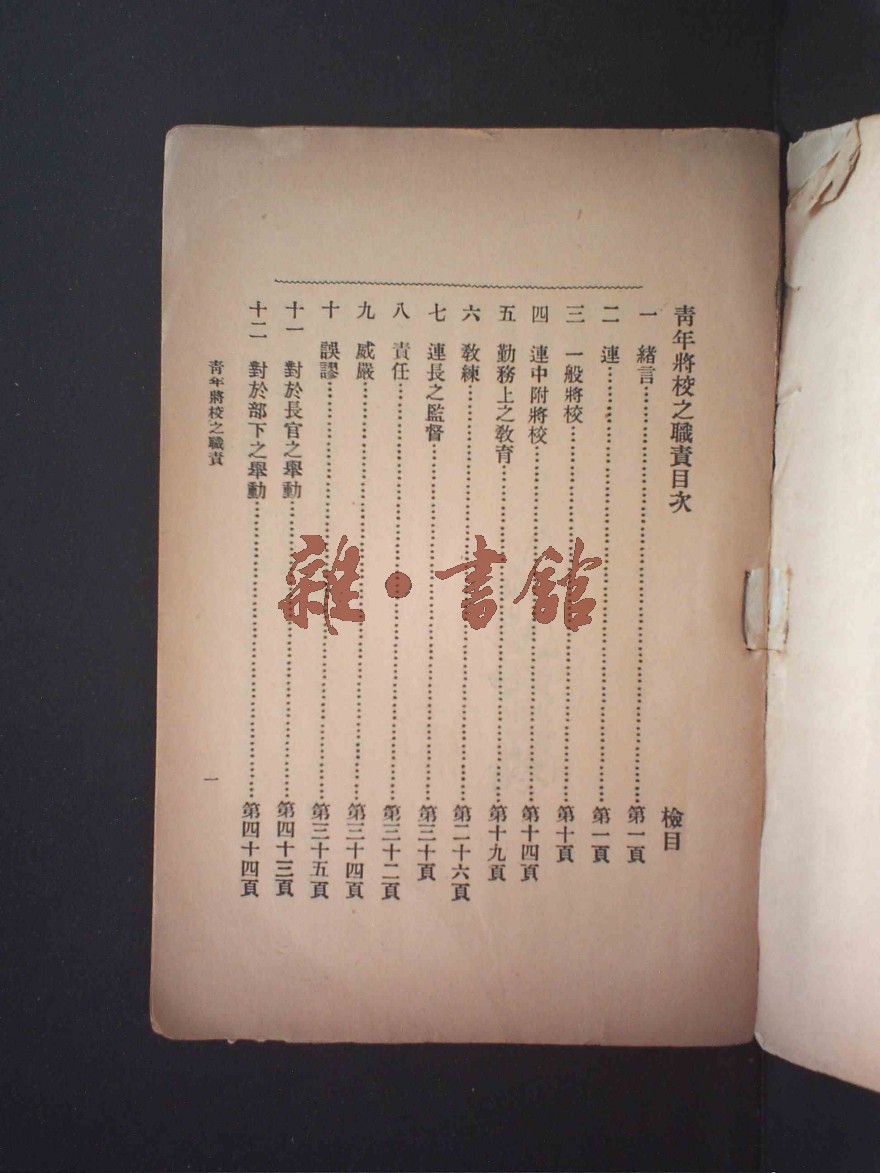 青年將校之職責目次　檢目
一　緒言……第一頁
二　連……第一頁
三　一般將校……第十頁
四　連中附將校……第十四頁
五　勤務上之敎育……第十九頁
六　敎練……第二十六頁
七　連長之監督……第三十頁
八　責任……第三十二頁
九　威嚴……第三十四頁
十　誤謬……第三十五頁
十一　對於長官之舉動……第四十三頁
十二　對於部下之舉動……第四十四頁
青年將校之職責　一
雜·書館